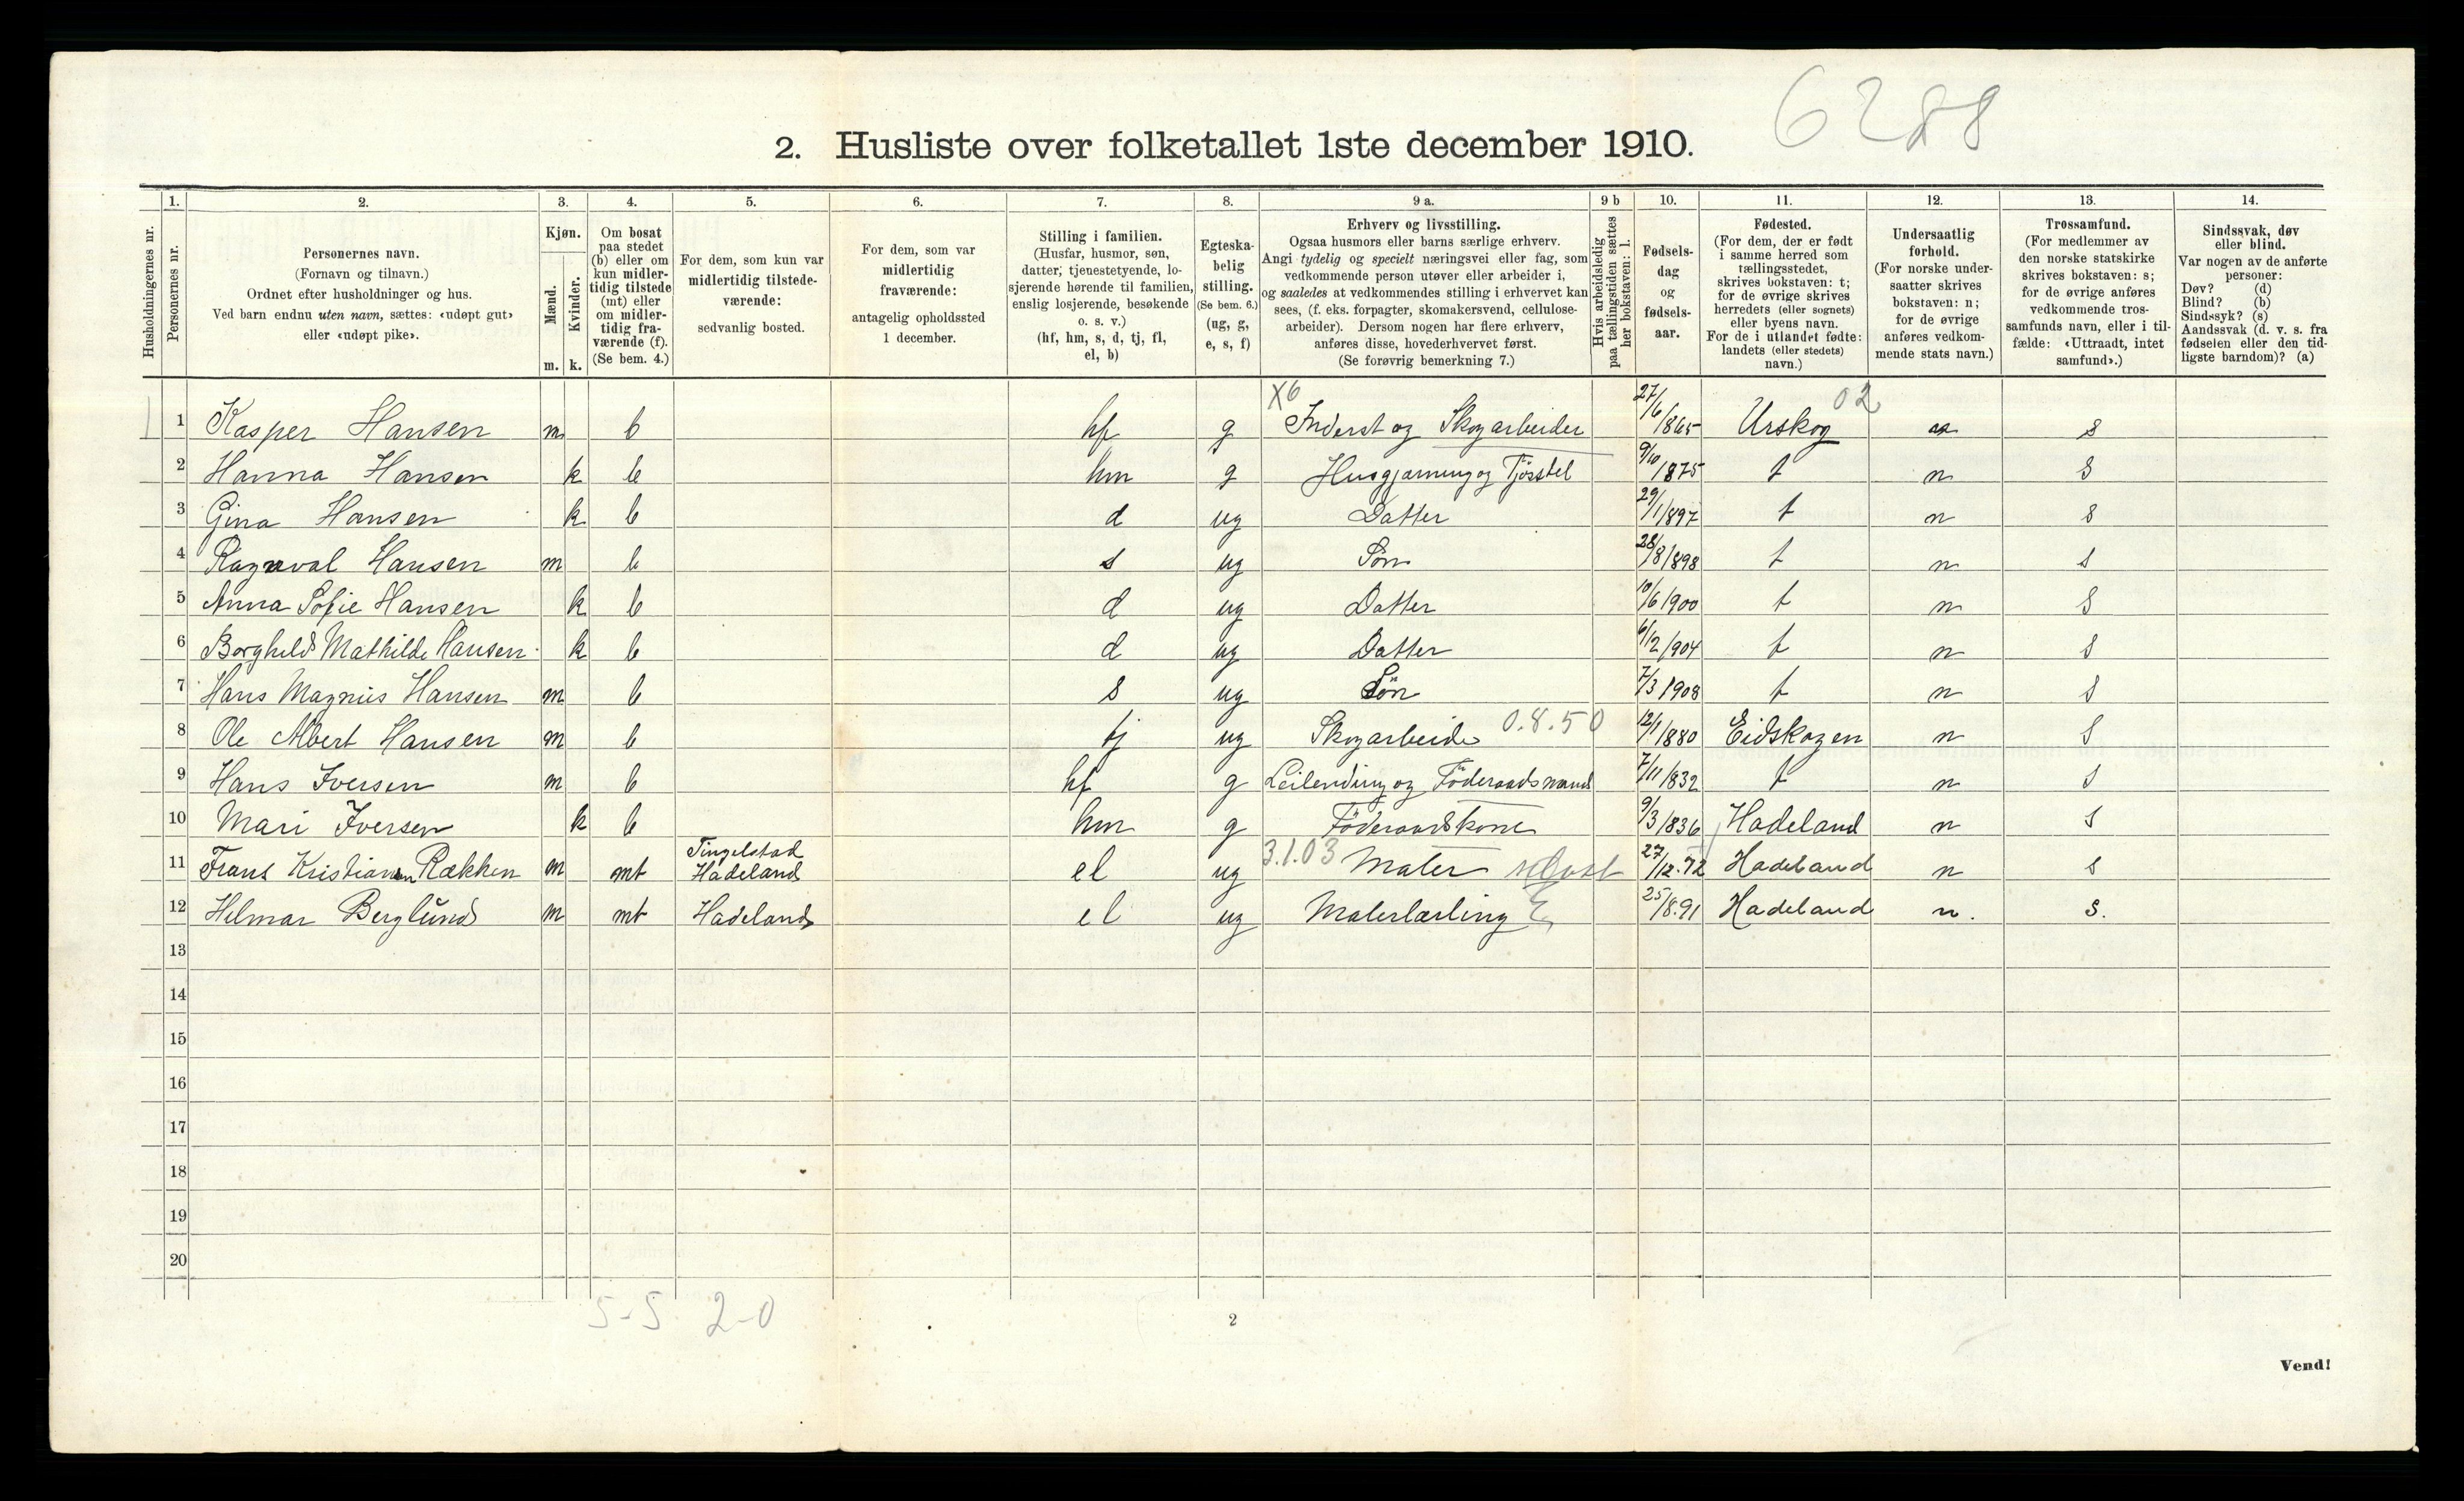 6288
2. Husliste over folketallet 1ste december 1910.
1. 2. 3. 4. 5. 6. 7. 8. 9 a. 9 b 10. 11. 12. 13. 14.
Husholdningernes nr.
Personernes nr.
Personernes navn.
(Fornavn og tilnavn.)
Ordnet efter husholdninger og hus.
Ved barn endnu uten navn, sættes: «udøpt gut»
eller «udøpt pike».
Kjøn.
Mænd.
Kvinder.
m. k.
Om bosat
paa stedet
(b) eller om
kun midler-
tidig tilstede
(mt) eller
om midler-
tidig fra-
værende (f).
(Se bem. 4.)
For dem, som kun var
midlertidig tilstede-
værende:
sedvanlig bosted.
For dem, som var
midlertidig
fraværende:
antagelig opholdssted
1 december.
Stilling i familien.
(Husfar, husmor, søn,
datter, tjenestetyende, lo-
sjerende hørende til familien,
enslig losjerende, besøkende
o. s. v.)
(hf, hm, s, d, tj, fl,
el, b)
Egteska-
belig
stilling.
(Se bem. 6.)
(ug, g,
e, s, f)
Erhverv og livsstilling.
Ogsaa husmors eller barns særlige erhverv.
Angi tydelig og specielt næringsvei eller fag, som
vedkommende person utøver eller arbeider i,
og saaledes at vedkommendes stilling i erhvervet kan
sees, (f. eks. forpagter, skomakersvend, cellulose-
arbeider). Dersom nogen har flere erhverv,
anføres disse, hovederhvervet først.
(Se forøvrig bemerkning 7.)
Hvis arbeidsledig
paa tællingstiden sættes
her bokstaven: l.
Fødsels-
dag
og
fødsels-
aar.
Fødested.
(For dem, der er født
i samme herred som
tællingsstedet,
skrives bokstaven: t;
for de øvrige skrives
herredets (eller sognets)
eller byens navn.
For de i utlandet fødte:
landets (eller stedets)
navn.)
Undersaatlig
forhold.
(For norske under-
saatter skrives
bokstaven: n;
for de øvrige
anføres vedkom-
mende stats navn.)
Trossamfund.
(For medlemmer av
den norske statskirke
skrives bokstaven: s;
for de øvrige anføres
vedkommende tros-
samfunds navn, eller i til-
fælde: «Uttraadt, intet
samfund».)
Sindssvak, døv
eller blind.
Var nogen av de anførte
personer:
Døv? (d)
Blind? (b)
Sindssyk? (s)
Aandssvak (d. v. s. fra
fødselen eller den tid-
ligste barndom)? (a)
X6 02
1 Kasper Hansen m b hf g Inderst og Skogarbeider 27/6 1865 Urskog n s
2 Hanna Hansen k b hm g Husgjærning og Fjösstel 9/10 1875 t n s
3 Gina Hansen k b d ug Datter 29/1 1897 t n s
4 Ragnval Hansen m b s ug Søn 28/8 1898 t n s
5 Anna Sofie Hansen k b d ug Datter 10/6 1900 t n s
6 Borghild Mathilde Hansen k b d ug Datter 6/12 1904 t n s
7 Hans Magnus Hansen m b s ug Sön 7/3 1908 t n s
8 Ole Albert Hansen m b tj ug Skogarbeide 0.8.50 12/1 1880 Eidskogen n s
9 Hans Iversen m b hf g Leilending og Föderaadsmand 7/11 1832 t n s
10 Mari Iversen k b hm g Föderaadskone 9/3 1836 Hadeland n s
11 Frans Kristiansen Rækken m mt Tingelstad Hadeland el ug 3.1.03 Maler 27/12.72 Hadeland n s
12 Helmar Berglund m mt Hadeland el ug Malerlærling 25/8.91 Hadeland n. s.
13
14
15
16
17
18
19
20
5-5 2-0
2
Vend!